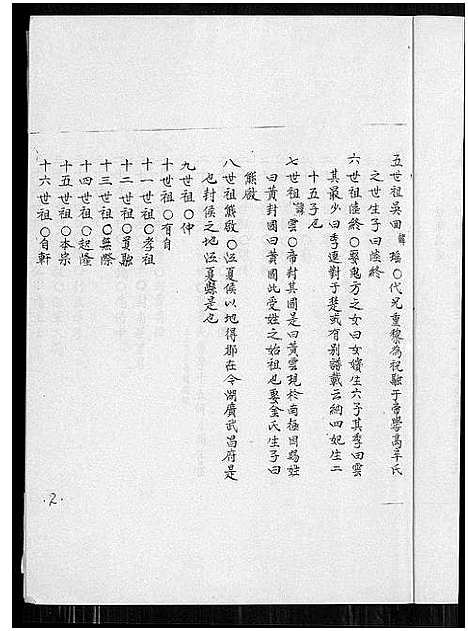 五世祖吴田 諱 瑤○代兄重黎為祝融于帝嚳高辛氏
之世生子曰陸終
六世祖陸終○娶鬼方之女曰女嬇生六子其季曰雲
其最少曰季連對于楚或有别譜載云納四妃生二
十五子也
七世祖 諱 雲○帝封其國是曰黄雲現於南極因賜姓
曰黄封國曰黄國此受姓之始祖也娶金氏生子曰
熊啟
八世祖熊啟○江夏侯以地得郡在今湖廣武昌府是
也封侯之地江夏縣是也
九世祖○仲
十世祖○有自
十一世祖○孝祖
十二世祖○貢融
十三世祖○無際
十四世祖○起隆
十五世祖○本宗
十六世祖○自軒
.2.